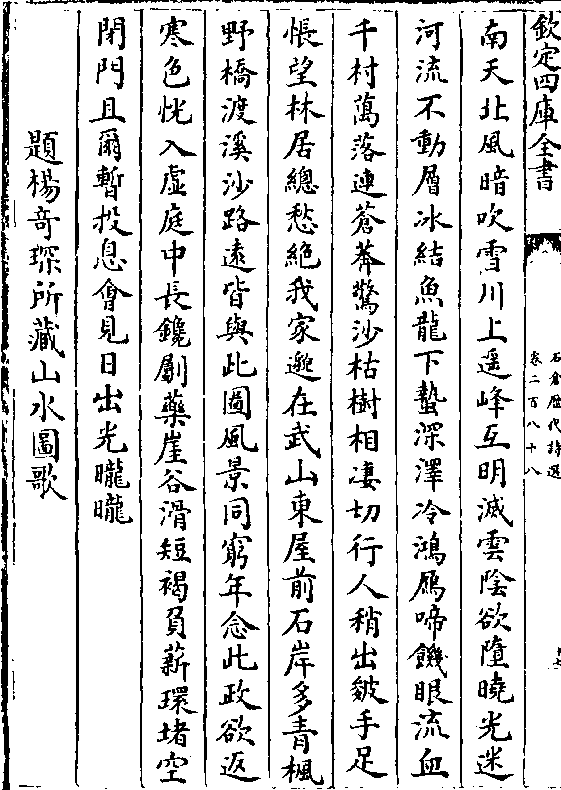 欽定四庫全書
石倉歴代詩選
卷二百八十八
南天北風暗吹雪川上遥峰互明滅雲陰欲墮曉光迷
河流不動層冰結魚龍下蟄深澤冷鴻鴈啼饑眼流血
千村蕭落連蒼莽驚沙枯樹相凄切行人稍出皴手足
悵望林居總愁絶我家邈在武山東屋前石岸多青楓
野橋渡溪沙路逺皆與此圖風景同窮年念此政欲返
寒色恍入虚庭中長鑱劚藥崖谷滑短褐負薪環堵空
閉門且爾暫投息會見日出光曨曨
題楊竒琛所藏山水圖歌